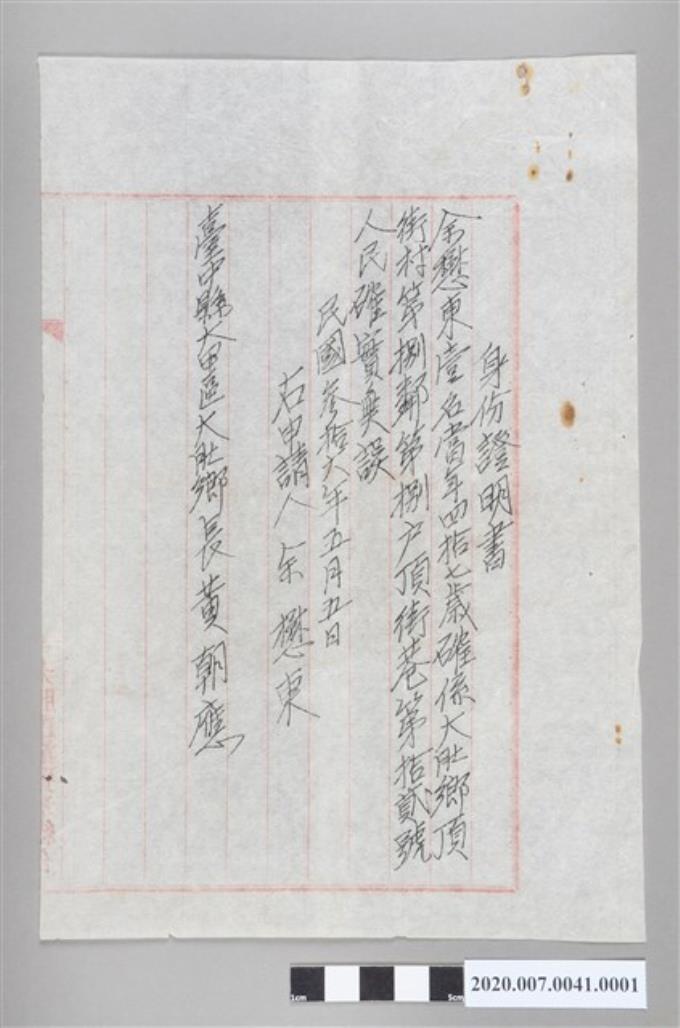 身份證明書
余懋東壹名當年四拾七歲確係大肚鄉頂
街村第捌鄰第捌户頂街巷第拾貳號
人民確實無誤
民國叁拾六年五月五日
右申請人余懋東
臺中縣大甲區大肚鄉長黃朝應
1cm
5cm
2020.007.0041.0001